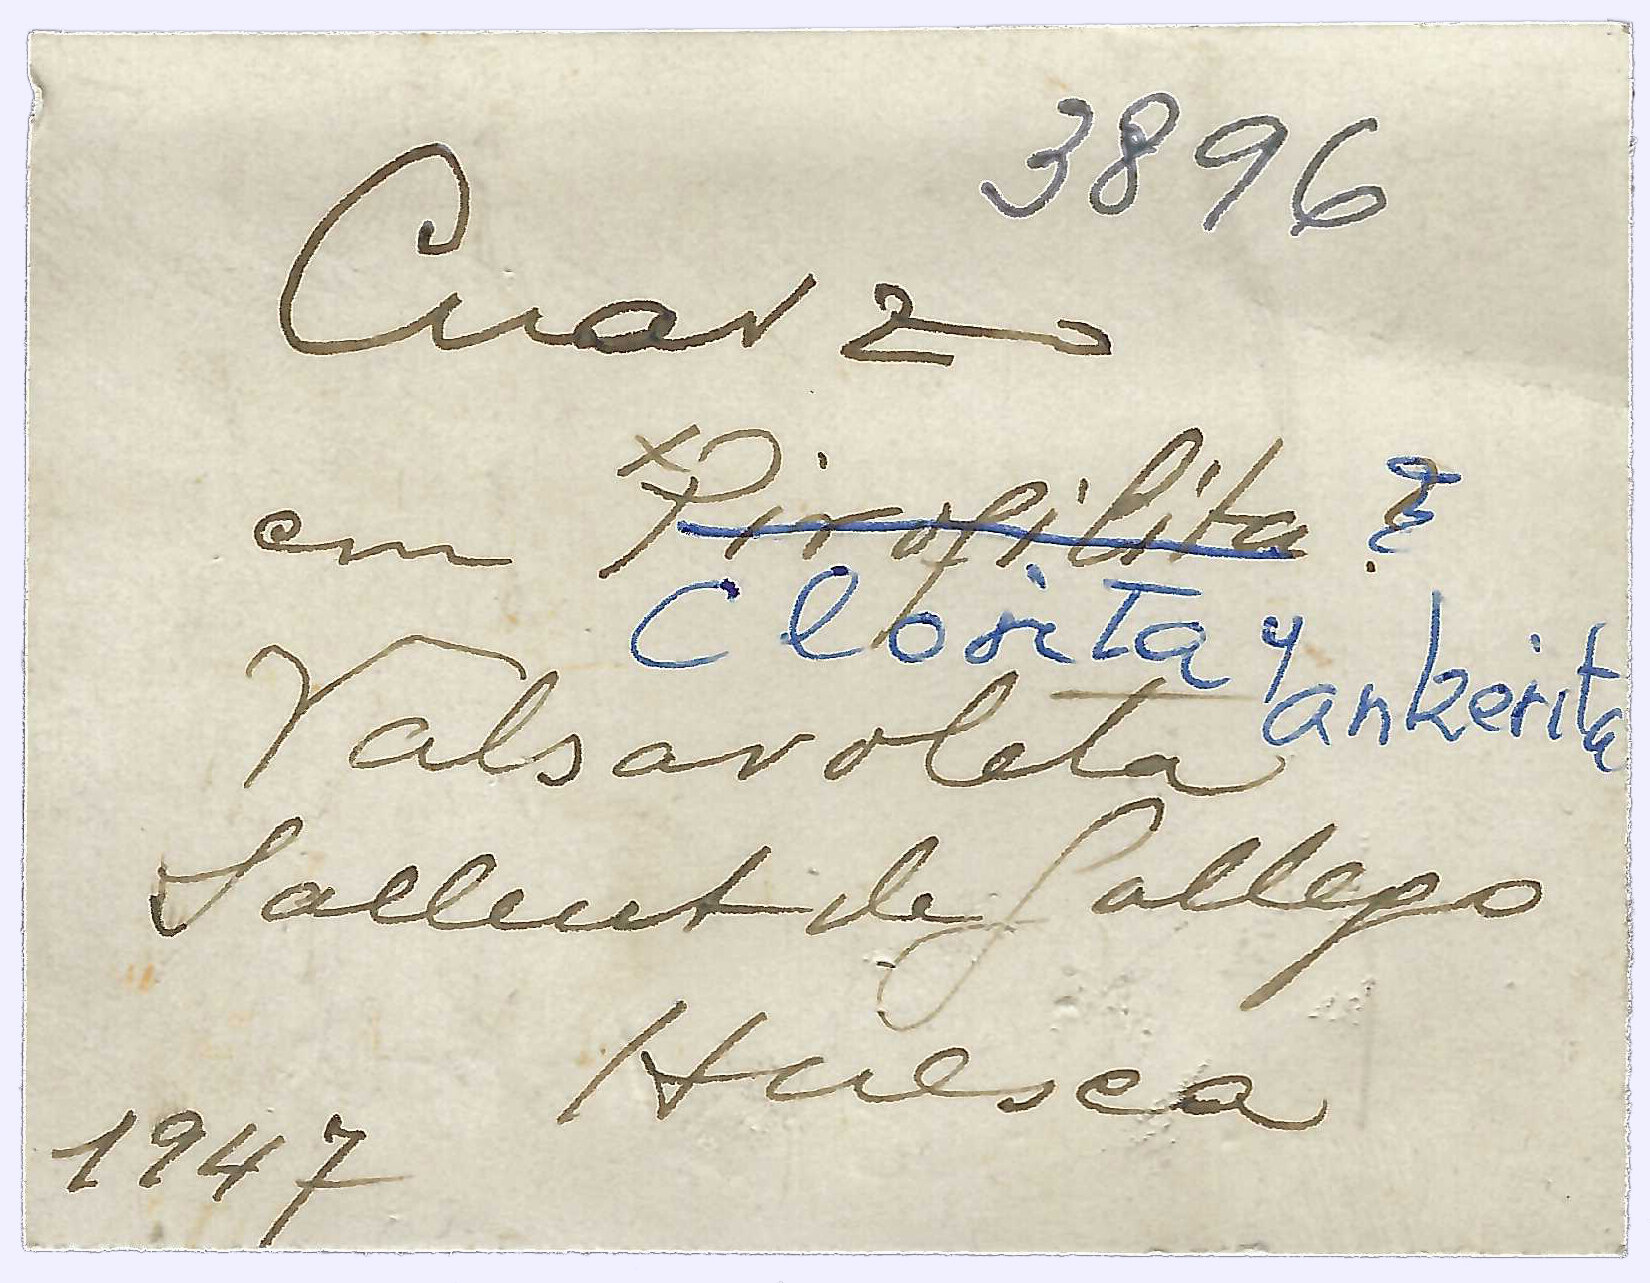 3896
Cuarzo
em × Pirofilita ?
Clorita y
ankerita
Valsavoleta
Sallent de Gallego
Huesca
1947